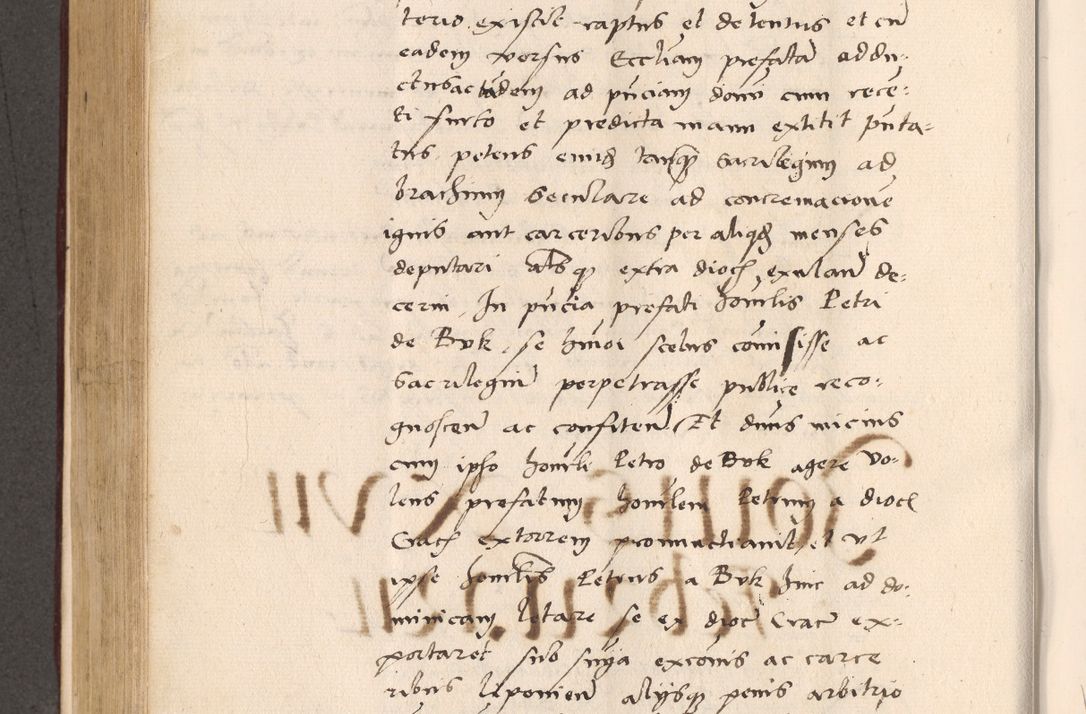 terio existit captus et detentus et cu
eadem versus Eccliam prefata addu-
ctus ac tadem ad pnciam domi cum rece-
ti furto et predicta manu extitit puta-
tus petens eund tanq sacrilegum ad
brachium seculare ad concremacione
ignis aut carceribus per aliqd menses
deputari absq extra dioc exulari de-
cerni. In pncia prefati honulis Petri
de Buk se hmoi scelus comisisse ac
sacrilegiu perpetrasse publice reco-
gnoscen ac confiten Et dnus micius
cum ipso honuli Petro de Buk agere vo-
lens prefatum honulem Petrum a dioc
Crac extorrem pronunctiavit et ut
ipse honulis Petrus a Buk hinc ad do-
minicam letare se ex dioc Crac ex-
portaret sub pena exconis ac carce
ribus liponien alijsq penis arbitrio